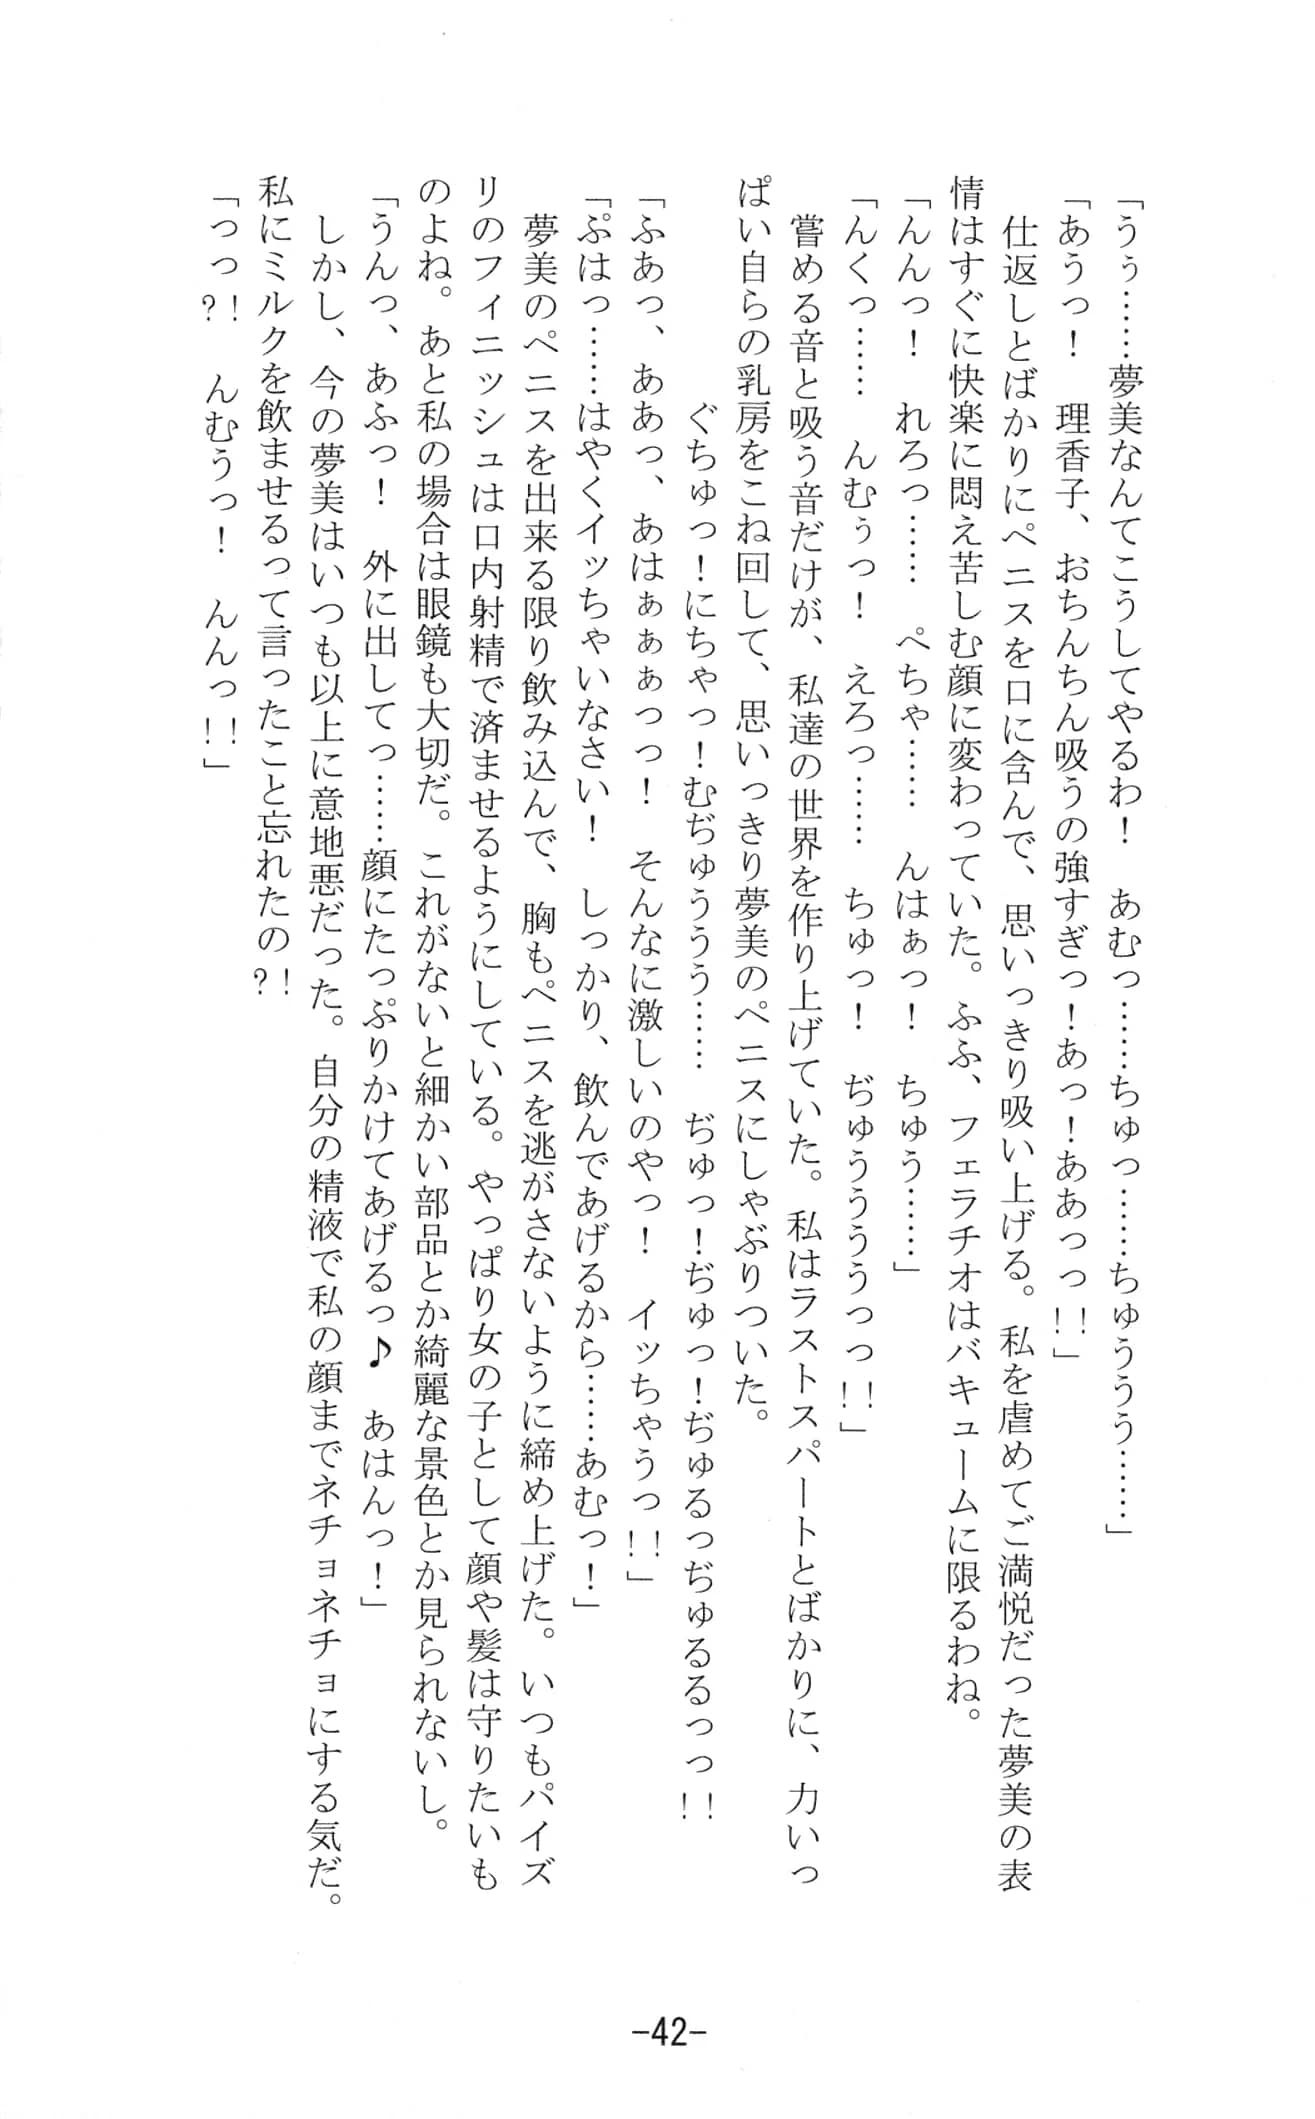 「うぅ……夢美なんてこうしてやるわ！　あむっ……ちゅっ……ちゅううう……」
「あうっ！　理香子、おちんちん吸うの強すぎっ！あっ！ああっっ!!」
　仕返しとばかりにペニスを口に含んで、思いっきり吸い上げる。私を虐めてご満悦だった夢美の表
情はすぐに快楽に悶え苦しむ顔に変わっていた。ふふ、フェラチオはバキュームに限るわね。
「んんっ！　れろっ……　ぺちゃ……　んはぁっ！　ちゅう……」
「んくっ……　んむぅっ！　えろっ……　ちゅっ！　ぢゅううううっっ!!」
　嘗める音と吸う音だけが、私達の世界を作り上げていた。私はラストスパートとばかりに、力いっ
ぱい自らの乳房をこね回して、思いっきり夢美のペニスにしゃぶりついた。
　　　　　　ぐちゅっ！にちゃっ！むぢゅううう……　ぢゅっ！ぢゅっ！ぢゅるっぢゅるるっっ!!
「ふあっ、ああっ、あはぁぁぁっっ！　そんなに激しいのやっ！　イッちゃうっ!!」
「ぷはっ……はやくイッちゃいなさい！　しっかり、飲んであげるから……あむっ！」
　夢美のペニスを出来る限り飲み込んで、胸もペニスを逃がさないように締め上げた。いつもパイズ
リのフィニッシュは口内射精で済ませるようにしている。やっぱり女の子として顔や髪は守りたいも
のよね。あと私の場合は眼鏡も大切だ。これがないと細かい部品とか綺麗な景色とか見られないし。
「うんっ、あふっ！　外に出してっ……顔にたっぷりかけてあげるっ♪　あはんっ！」
　しかし、今の夢美はいつも以上に意地悪だった。自分の精液で私の顔までネチョネチョにする気だ。
私にミルクを飲ませるって言ったこと忘れたの?!
「っっ?!　んむうっ！　んんっ!!」
-42-